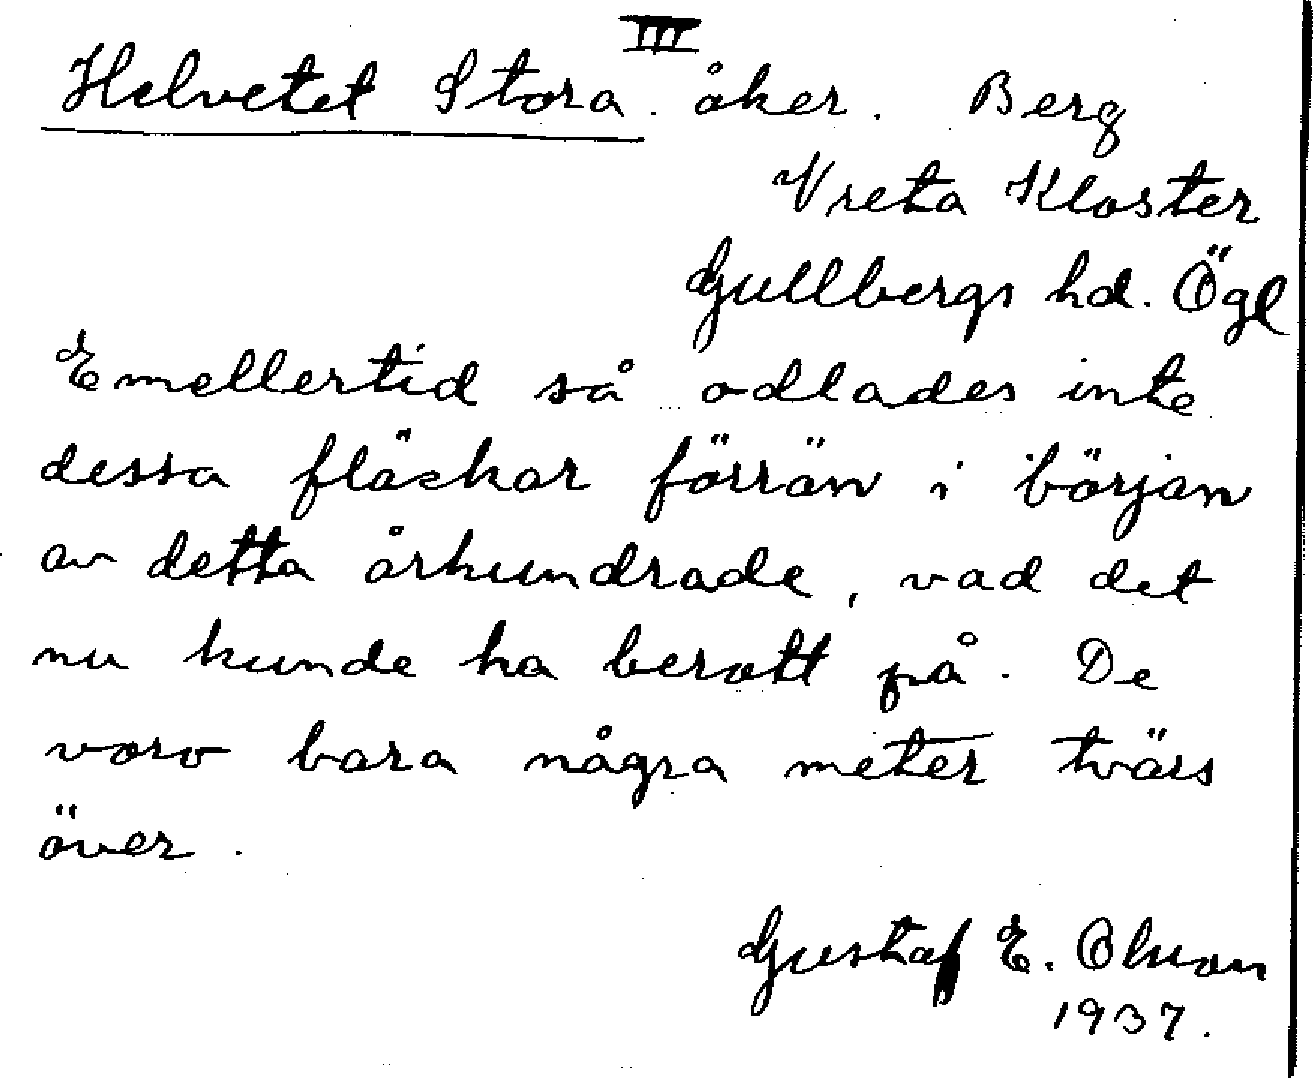 III
Helvetet Stora. åker. Berg
Vreta Kloster
Gullbergs hd. Ögl
Emellertid så odlades inte
dessa fläckar förrän i början
av detta århundrade, vad det
nu kunde ha berott på. De
voro bara några meter tvärs
över.
Gustaf E. Olsson
1937.